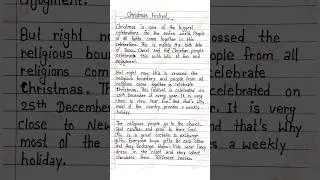 Christmas Festival
Christmas is one of the biggest
celebrations for the entire world. People
of all faiths come together in this
celebration. This is mainly the birth date
of Jesus Christ and the Christian people
celebrate this with lots of fun and
enjoyment.
But right now this is crossed the
religious boundary and people from all
religions come together to celebrate
Christmas. This festival is celebrated on
25th December of every year. It is very
close to New Year and that's why
most of the country provides a weekly
holiday.
The religious people go to the church,
and pray to their
This is a great occasion to exchange
gifts. Everyone buys gifts for each other
and they exchange them. Kids wear fancy
dress in the night and they collect
chocolates from different houses.
But right now
crossed the
religious bound
people from
religions come
celebrate
Christmas. Thi
celebrated on
25th December
It is very
close to New
that's why
most of the
a weekly
holiday.